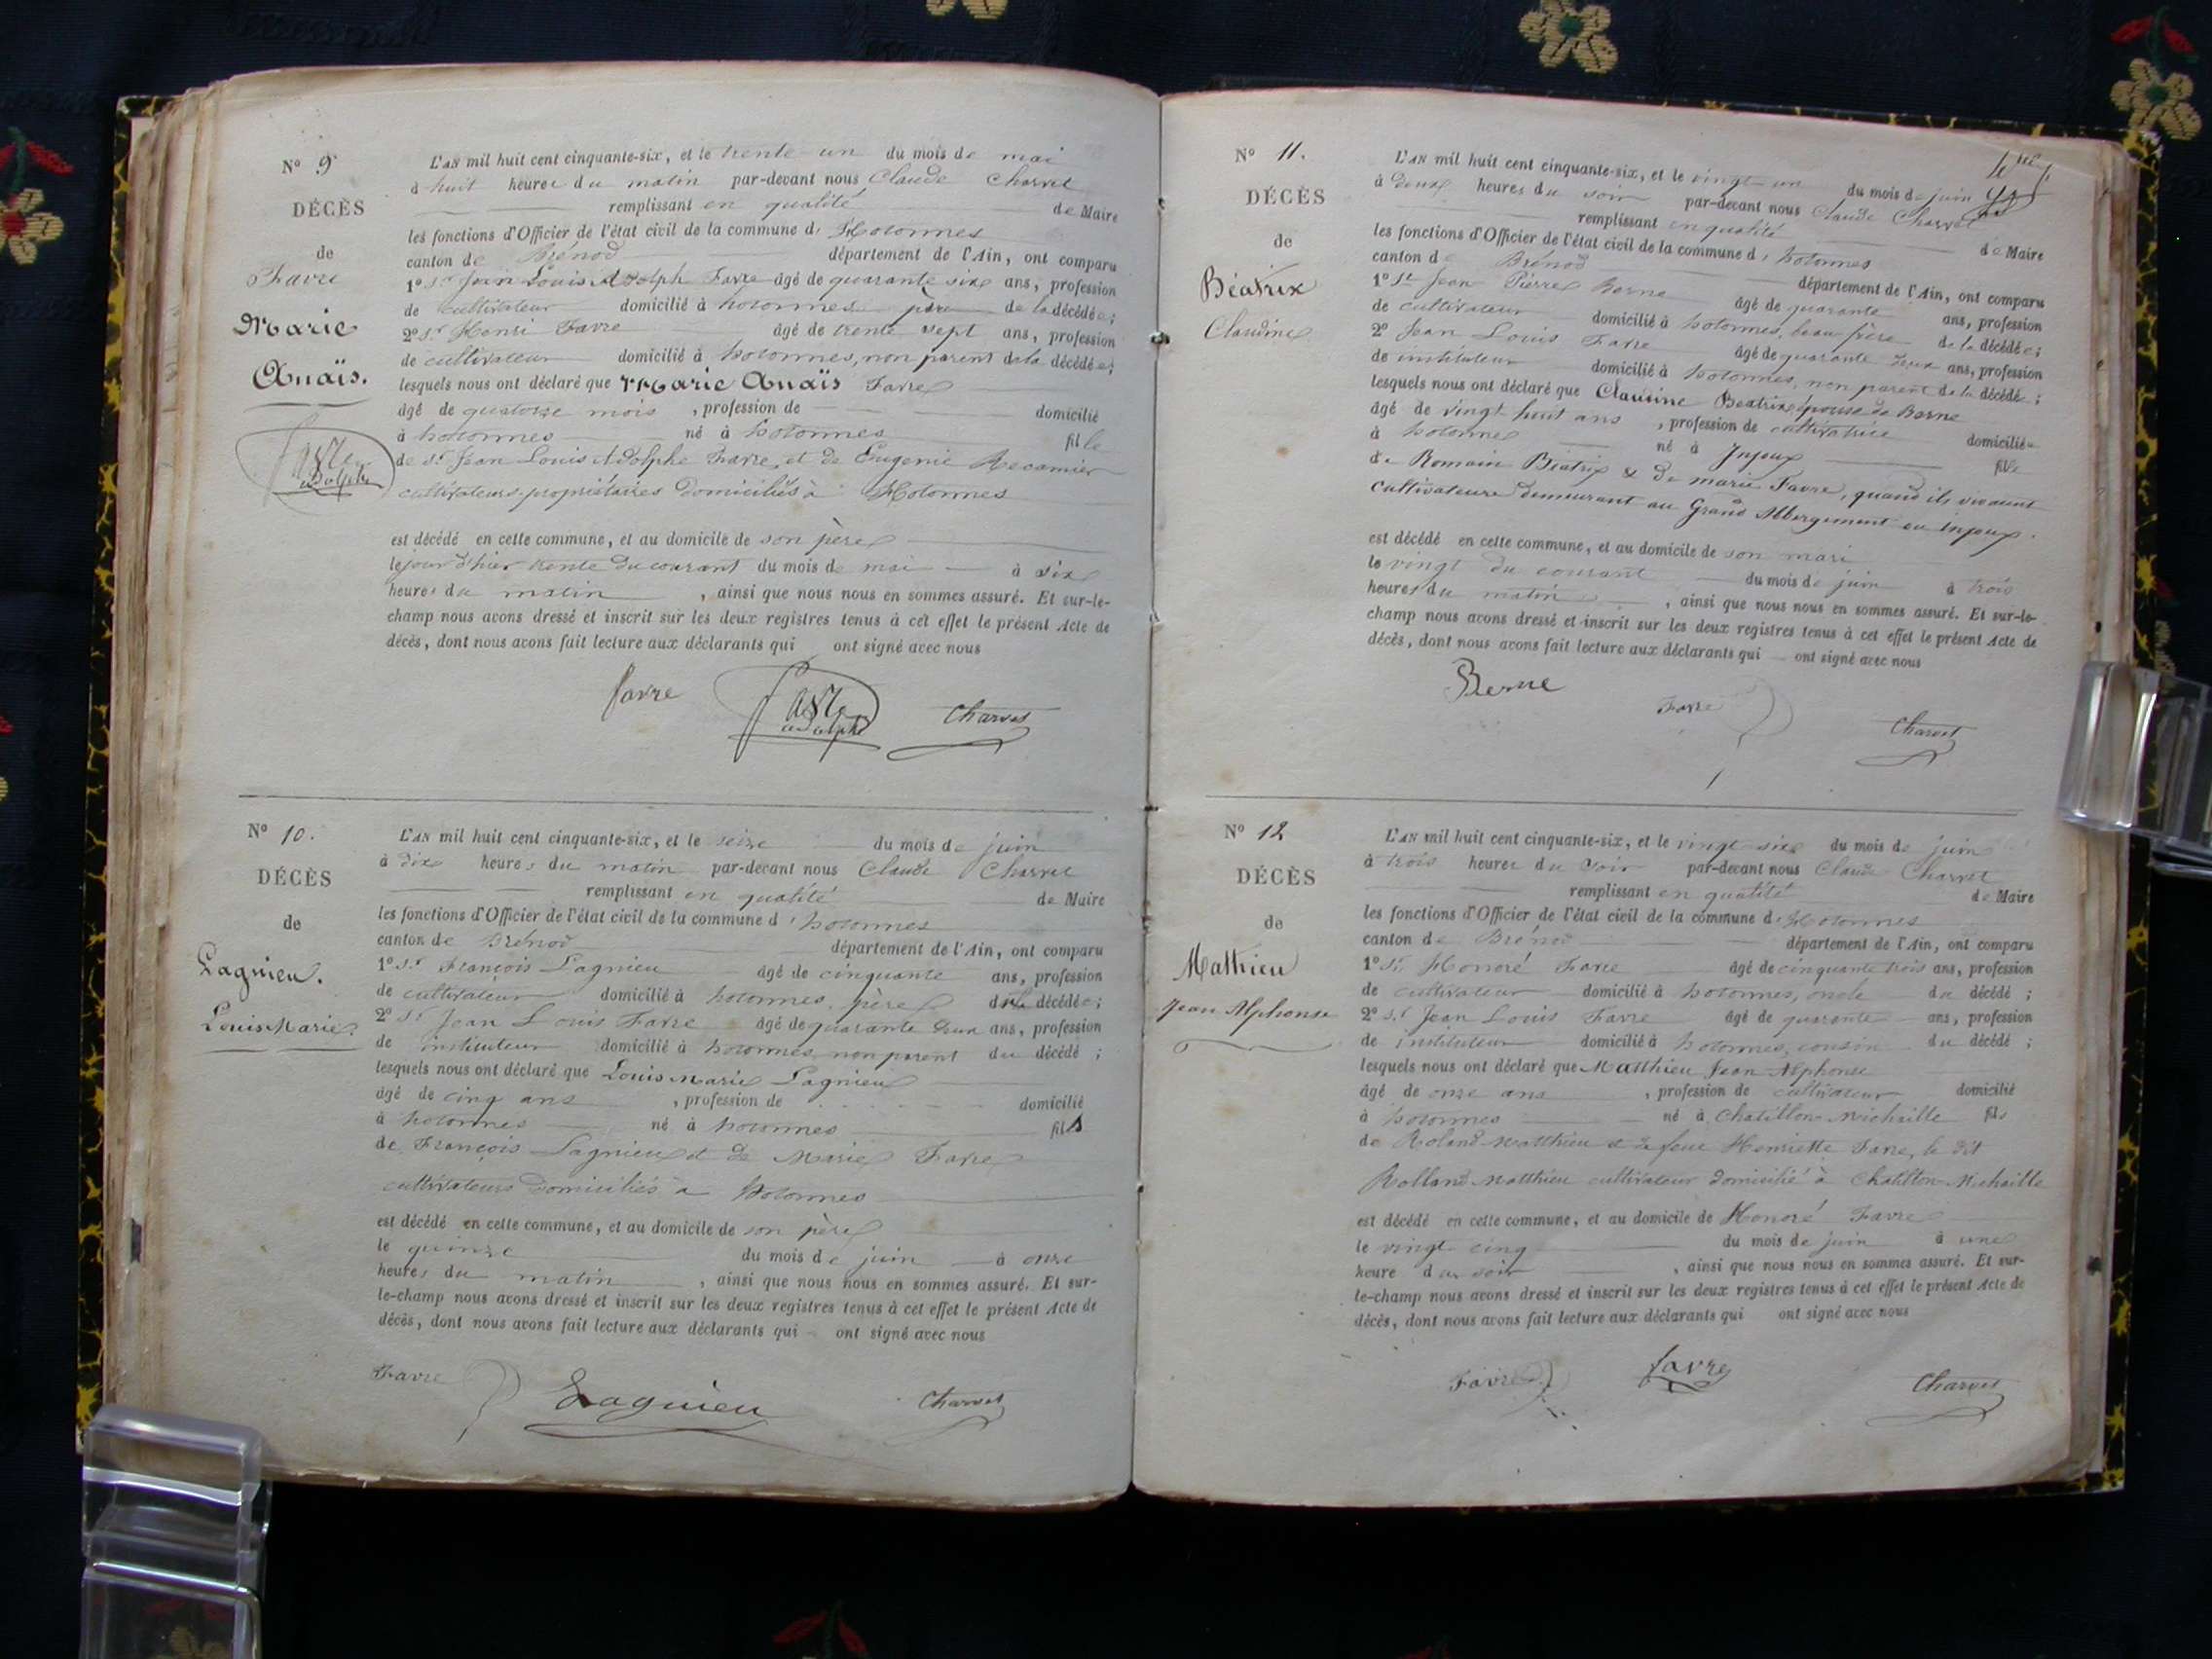 N° 9
DÉCÈS
de
Favre
Marie
Anaïs.
Favre
adolphe
L'AN mil huit cent cinquante-six, et le trente-un du mois de mai
à huit heures du matin par-devant nous Claude Charvet
remplissant en qualité de Maire
les fonctions d'Officier de l'état civil de la commune d' Hotonnes
canton de Brénod département de l'Ain, ont comparu
1° Sr Jean Louis Adolph Favre âgé de quarante six ans, profession
de cultivateur domicilié à hotonnes père de la décédée;
2° Sr Henri Favre âgé de trente sept ans, profession
de cultivateur domicilié à hotonnes, non parent de la décédée;
lesquels nous ont déclaré que Marie Anaïs Favre
âgé de quatorze mois , profession de domicilié
à hotonnes né à hotonnes fille
de Sr Jean Louis Adolphe Favre, et de Eugenie Recamier
cultivateurs-propriétaires domiciliés à Hotonnes
est décédé en cette commune, et au domicile de son père
le jour d'hier trente du courant du mois de mai à six
heures du matin , ainsi que nous nous en sommes assuré. Et sur-le-
champ nous avons dressé et inscrit sur les deux registres tenus à cet effet le présent Acte de
décès, dont nous avons fait lecture aux déclarants qui ont signé avec nous
favre Favre adolphe Charvet
N° 10.
DÉCÈS
de
Lagnieu.
Louis Marie.
L'AN mil huit cent cinquante-six, et le seize du mois de juin
à dix heures du matin par-devant nous Claude Charvet
remplissant en qualité de Maire
les fonctions d'Officier de l'état civil de la commune d' hotonnes
canton de Brénod département de l'Ain, ont comparu
1° Sr François Lagnieu âgé de cinquante ans, profession
de cultivateur domicilié à hotonnes, père du décédé;
2° Sr Jean Louis Favre âgé de quarante deux ans, profession
de instituteur domicilié à hotonnes non parent du décédé ;
lesquels nous ont déclaré que Louis Marie Lagnieu
âgé de cinq ans , profession de domicilié
à hotonnes né à hotonnes fils
de François Lagnieu et de Marie Favre
cultivateurs domiciliés à hotonnes
est décédé en cette commune, et au domicile de son père
le quinze du mois de juin à onze
heures du matin , ainsi que nous nous en sommes assuré. Et sur-
le-champ nous avons dressé et inscrit sur les deux registres tenus à cet effet le présent Acte de
décès, dont nous avons fait lecture aux déclarants qui ont signé avec nous
Favre Lagnieu Charvet
N° 11.
DÉCÈS
de
Béatrix
Claudine
L'AN mil huit cent cinquante-six, et le vingt-un du mois de juin
à deux heures du soir par-devant nous Claude Charvet
remplissant en qualité de Maire
les fonctions d'Officier de l'état civil de la commune d' hotonnes
canton de Brénod département de l'Ain, ont comparu
1° Sr Jean Pierre Berne âgé de quarante ans, profession
de cultivateur domicilié à hotonnes, beau frère de la décédée;
2° Jean Louis Favre âgé de quarante deux ans, profession
de instituteur domicilié à hotonnes, non parent de la décédé ;
lesquels nous ont déclaré que Claudine Beatrix épouse de Berne
âgé de vingt huit ans , profession de cultivatrice domiciliée
à hotonnes né à Injoux fille
de Romain Béatrix & de marie Favre, quand ils vivaient
cultivateurs demeurant au Grand Abbergement en Injoux.
est décédé en cette commune, et au domicile de son mari
le vingt du courant du mois de juin à trois
heures du matin , ainsi que nous nous en sommes assuré. Et sur-le-
champ nous avons dressé et inscrit sur les deux registres tenus à cet effet le présent Acte de
décès, dont nous avons fait lecture aux déclarants qui ont signé avec nous
Berne Favre Charvet
N° 12
DÉCÈS
de
Matthieu
Jean Alphonse
L'AN mil huit cent cinquante-six, et le vingt-six du mois de juin
à trois heures du soir par-devant nous Claude Charvet
remplissant en qualité de Maire
les fonctions d'Officier de l'état civil de la commune d' Hotonnes
canton de Brénod département de l'Ain, ont comparu
1° Sr. Honoré Favre âgé de cinquante trois ans, profession
de cultivateur domicilié à hotonnes, oncle du décédé ;
2° Sr Jean Louis Favre âgé de quarante ans, profession
de instituteur domicilié à hotonnes, cousin du décédé ;
lesquels nous ont déclaré que Matthieu Jean Alphonse
âgé de onze ans , profession de cultivateur domicilié
à hotonnes né à Chatillon-Michaille fils
de Roland Matthieu & de feue Henriette Favre, le dit
Rolland Matthieu cultivateur domicilié à Chatillon-Michaille
est décédé en cette commune, et au domicile de Honoré Favre
le vingt cinq du mois de juin à une
heure du soir , ainsi que nous nous en sommes assuré. Et sur-
le-champ nous avons dressé et inscrit sur les deux registres tenus à cet effet le présent Acte de
décès, dont nous avons fait lecture aux déclarants qui ont signé avec nous
Favre favre Charvet